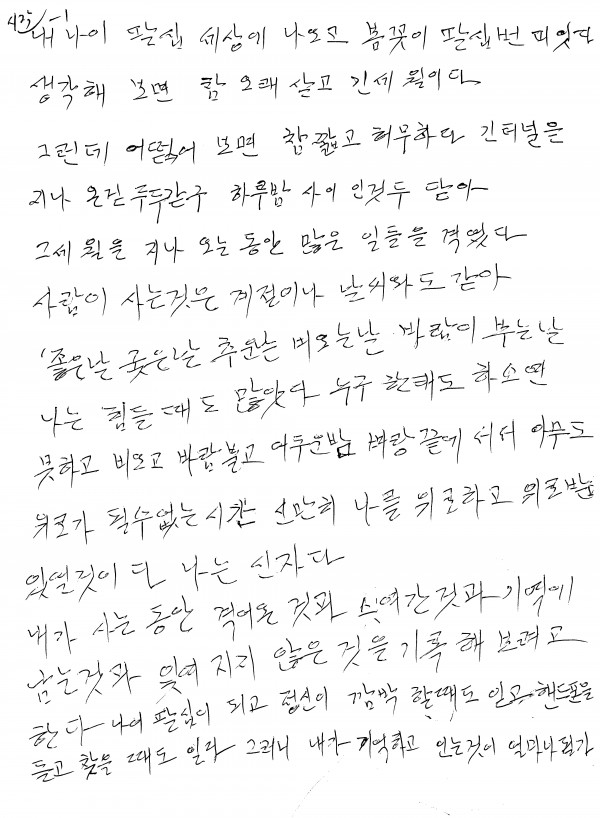 시작/-1
내 나이 팔십 세상에 나오고 봄꽃이 팔십번 피엇다
생각해 보면 참 오래 살고 긴세월이다
그런데 어떻어 보면 참짧고 허무하다 긴터널을
지나 온긷 두두같구 하루밤 사이 인것두 닫아
그세월을 지나 오는 동안 많은 일들을 격였다
사람이 사는것은 계절이나 날씨와도 같아
'좋은날 궂은날 추운날 비오는날 바람이 부는날
나는 힘들때도 많았다 누구 한태도 하소연
못하고 비오고 바람불고 어두운밤 벼랑끝에 서서 아무도
위로가 될수없는시간 나를 위로하고 위로받는
있엿것이다 나는 신자다
내가 사는 동안 격어온 것과 기억에
남는것과 잊여 지지 않은 것을 기록 해 보려고
한다 나이 팔십이 되고 정신이 깜박 할때도 인고 핸드폰을
들고 찾을 때도 일다 그러니 내가 기억하고 인는것이 얼마나 될가